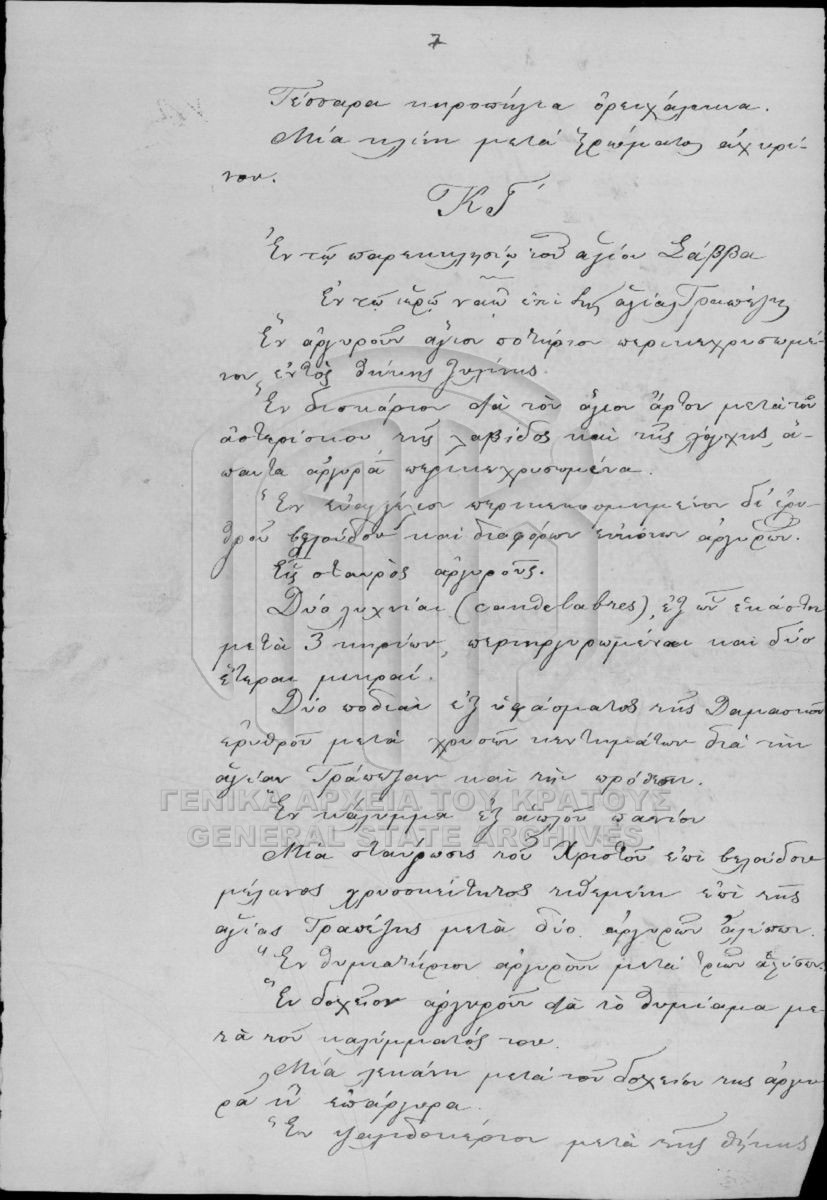 7
Τέσσαρα κηροπήγια ὀρειχάλκινα.
Μία κλίνη μετά στρώματος ἀχυρί-
νου.
ΚΓ´
Ἐν τῷ παρεκκλησίῳ τοῦ ἁγίου Σάββα
Ἐν τῷ ἱερῷ ναῷ ἐπὶ τῆς ἁγίας Τραπέζης
Ἓν ἀργυροῦν ἅγιον ποτήριον περικεχρυσωμέ-
νον ἐντὸς θήκης ξυλίνης.
Ἓν δισκάριον διὰ τὸν ἅγιον ἄρτον μετὰ τοῦ
ἀστερίσκου τῆς λαβίδος καὶ τῆς λόγχης, ἅ-
παντα ἀργυρᾶ περικεχρυσωμένα.
Ἓν εὐαγγέλιον περικεκοσμημένον δι' ἐρυ-
θροῦ βελούδου καὶ διαφόρων εἰκόνων ἀργυρῶν.
Εἷς σταυρὸς ἀργυροῦς.
Δύο λυχνίαι (candelabres), ἐξ ὧν ἑκάστη
μετὰ 3 κηρίων, περιηργυρωμέναι καὶ δύο
ἕτεραι μικραί.
Δύο ποδιαὶ ἐξ ὑφάσματος τῆς Δαμασκοῦ
ἐρυθροῦ μετὰ χρυσῶν κεντημάτων διὰ τὴν
ἁγίαν Τράπεζαν καὶ τὴν πρόθεσιν.
ΓΕΝΙΚΑ ΑΡΧΕΙΑ ΤΟΥ ΚΡΑΤΟΥΣ
Ἓν κάλυμμα ἐξ ἁπλοῦ πανίου
GENERAL STATE ARCHIVES
Μία σταύρωσις τοῦ Χριστοῦ ἐπὶ βελούδου
μέλανος χρυσοκεντήτος τιθεμένη ἐπὶ τῆς
ἁγίας Τραπέζης μετὰ δύο ἀργυρῶν ἁλύσεων.
Ἓν θυμιατήριον ἀργυροῦν μετὰ τριῶν ἁλύσεων.
Ἓν δοχεῖον ἀργυροῦν διὰ τὸ θυμίαμα με-
τὰ τοῦ καλύμματός του.
Μία λεκάνη μετὰ τοῦ δοχείου της ἀργυ-
ρᾶ ἢ ἐπάργυρα.
Ἓν ψαλιδοκέριον μετὰ τῆς θήκης